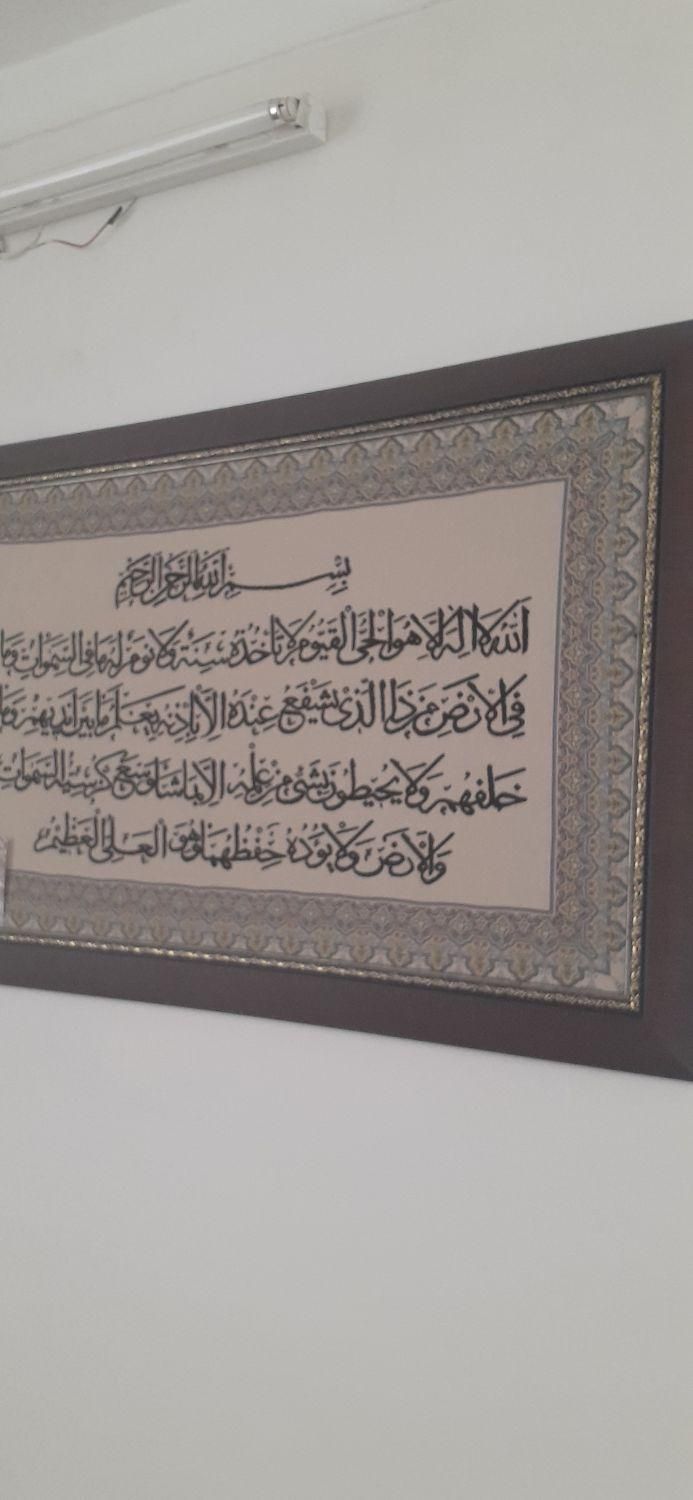 بِسْمِ اللهِ الرَّحْمٰنِ الرَّحِيْمِ
اَللهُ لَا اِلٰهَ اِلَّا هُوَ اَلْحَىُّ الْقَيُّوْمُ لَا تَاْخُذُهٗ سِنَةٌ وَلَا نَوْمٌ لَهٗ مَا فِى السَّمٰوَاتِ وَمَا
فِى الْاَرْضِ مَنْ ذَا الَّذِىْ يَشْفَعُ عِنْدَهٗ اِلَّا بِاِذْنِهٖ يَعْلَمُ مَا بَيْنَ اَيْدِيْهِمْ وَمَا
خَلْفَهُمْ وَلَا يُحِيْطُوْنَ بِشَىْءٍ مِنْ عِلْمِهٖ اِلَّا بِمَا شَاءَ وَسِعَ كُرْسِيُّهُ السَّمٰوَاتِ
وَالْاَرْضَ وَلَا يَؤُدُهٗ حِفْظُهُمَا وَهُوَ الْعَلِىُّ الْعَظِيْمُ